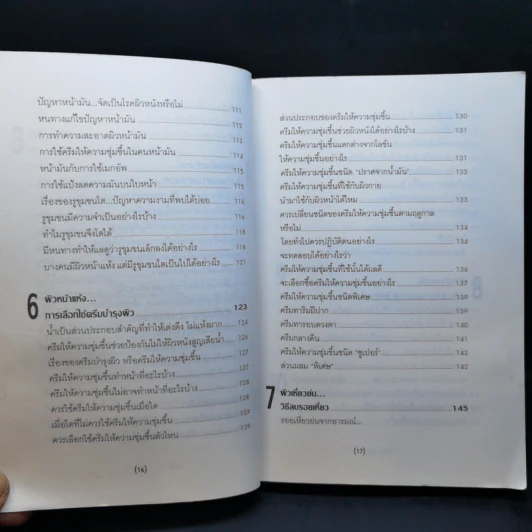 ปัญหาหน้ามัน...จัดเป็นโรคผิวหนังหรือไม่ 111
หนทางแก้ไขปัญหาหน้ามัน 112
การทำความสะอาดผิวหน้ามัน 113
การใช้ครีมให้ความชุ่มชื้นในคนหน้ามัน 114
หน้ามันกับการใช้เมกอัพ 115
การใช้แป้งลดความมันบนใบหน้า 115
เรื่องของรูขุมขนโต...ปัญหาความงามที่พบได้บ่อย 116
รูขุมขนมีความจำเป็นอย่างไรบ้าง 116
ทำไมรูขุมขนจึงโตได้ 118
มีหนทางทำให้แลดูว่ารูขุมขนเล็กลงได้อย่างไร 118
บางคนมีผิวหน้าแห้ง แต่มีรูขุมขนโตเป็นไปได้อย่างไร 121
6 ผิวหน้าแห้ง...
การเลือกใช้ครีมบำรุงผิว 123
น้ำเป็นส่วนประกอบสำคัญที่ทำให้เต่งตึง ไม่แห้งผาก 124
ครีมให้ความชุ่มชื้นช่วยป้องกันไม่ให้ผิวหนังสูญเสียน้ำ
เรื่องของครีมบำรุงผิว หรือครีมให้ความชุ่มชื้น
ครีมให้ความชุ่มชื้นทำหน้าที่อะไรบ้าง
ครีมให้ความชุ่มชื้นไม่อาจทำหน้าที่อะไรบ้าง
ควรใช้ครีมให้ความชุ่มชื้นเมื่อใด
เมื่อใดที่ไม่ควรใช้ครีมให้ความชุ่มชื้น 129
ควรเลือกใช้ครีมให้ความชุ่มชื้นตัวไหน 129
(16)
ส่วนประกอบของครีมให้ความชุ่มชื้น 130
ครีมให้ความชุ่มชื้นช่วยผิวหนังได้อย่างไรบ้าง 131
ครีมให้ความชุ่มชื้นแตกต่างจากโลชั่น
ให้ความชุ่มชื้นอย่างไร 131
ครีมให้ความชุ่มชื้นชนิด "ปราศจากน้ำมัน" 132
ครีมให้ความชุ่มชื้นที่ใช้กับผิวกาย
นำมาใช้กับผิวหน้าได้ไหม 133
ควรเปลี่ยนชนิดของครีมให้ความชุ่มชื้นตามฤดูกาล
หรือไม่ 134
โดยทั่วไปควรปฏิบัติตนอย่างไร 134
จะทดสอบได้อย่างไรว่า
ครีมให้ความชุ่มชื้นที่ใช้นั้นได้ผลดี 136
จะเลือกซื้อครีมให้ความชุ่มชื้นอย่างไร 136
ครีมให้ความชุ่มชื้นชนิดพิเศษ
ครีมทาริมฝีปาก
ครีมทารอบดวงตา
ครีมกลางคืน
ครีมให้ความชุ่มชื้นชนิด "ซูเปอร์"
ส่วนผสม "พิเศษ" 142
7 ผิวเหี่ยวย่น...
วิธีลบรอยเหี่ยว 145
รอยเหี่ยวย่นจากอารมณ์...
(17)